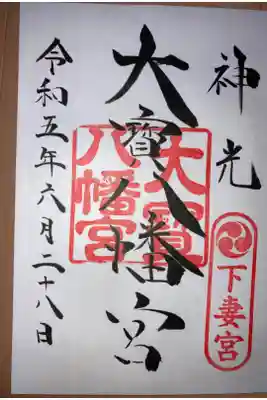 神光
下妻宮
大寶八幡宮
大寶八幡宮
令和五年六月二十八日